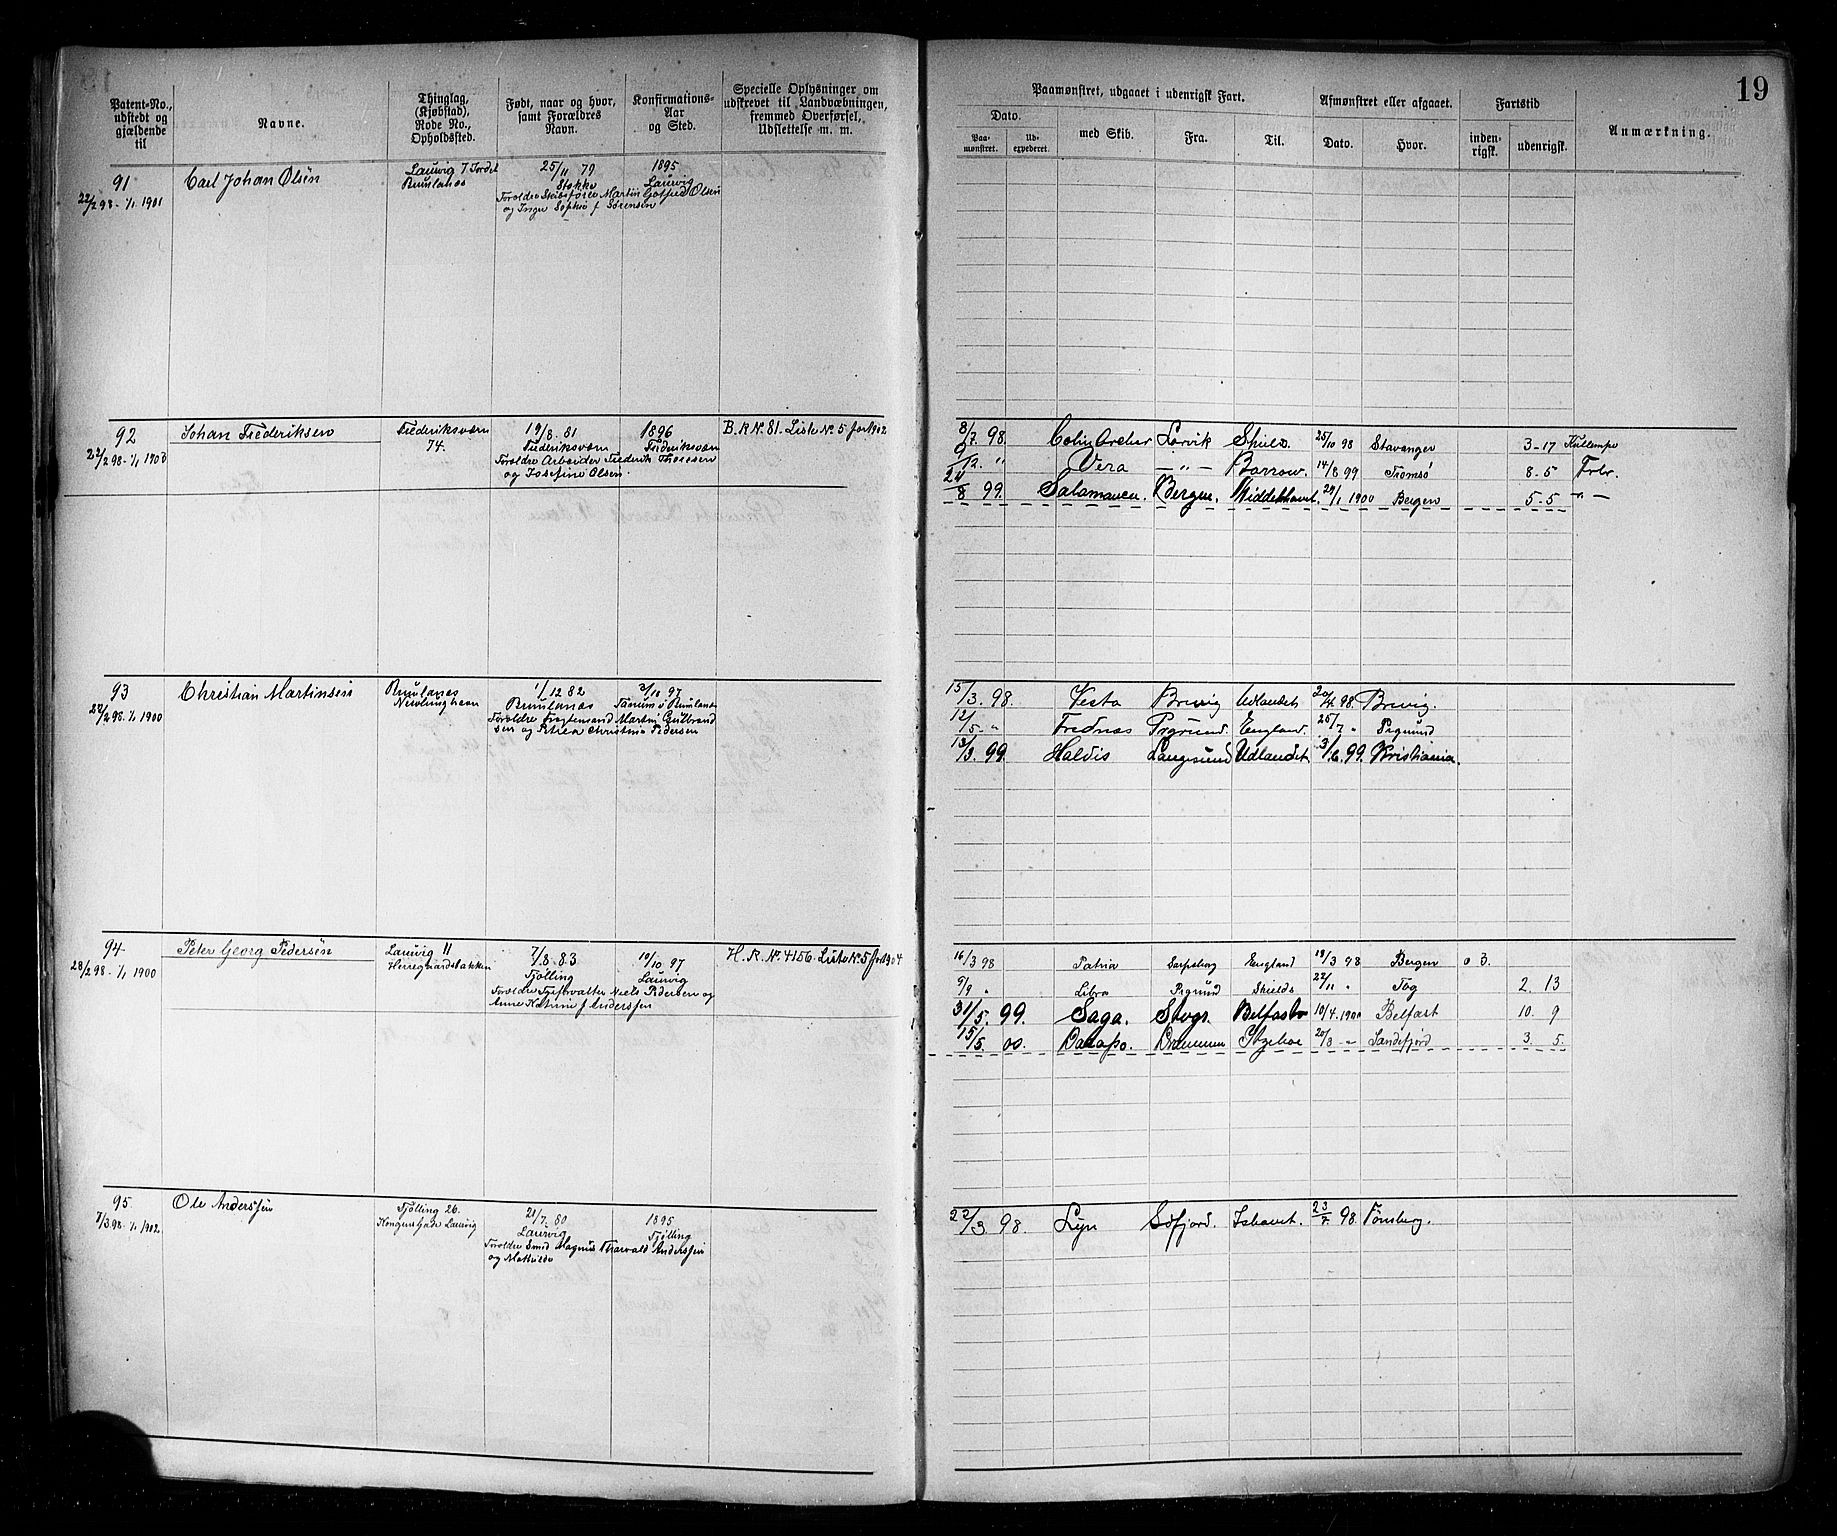 19
Patent-No., udstedt og gjældende til
Navne.
Thinglag, (Kjøbstad), Rode No., Opholdssted.
Født, naar og hvor, samt Forældres Navn.
Konfirmations-Aar og Sted.
Specielle Oplysninger om udskrevet til Landvæbningen, fremmed Overførsel, Udslettelse m. m.
Paamønstret, udgaaet i udenrigsk Fart.
Dato.
Paamønstret.
Udexpederet.
med Skib.
Fra.
Til.
Afmønstret eller afgaaet.
Dato.
Hvor.
Fartstid
indenrigsk.
udenrigsk.
Anmærkning.
91
22/2 98 - 1/1 1901
Carl Johan Olsen
Laurvig 7 Jordet
Brunlanæs
25/11 79
Stokke
1895
Laurvig
Forældre Skibsfører Martin Gotfred Olsen
og Inger Sophie f Sørensen
92
22/2 98 - 1/1 1903
Johan Frederiksen
Frederiksværn
74.
19/8. 81
Frederiksværn
1896
Frederiksværn
Forældre Arbeider Frederik Thoresen
og Josefine Olsen.
B. R. Nº. 81. Liste Nº 5 for 1902
8/7. 98. Colin Archer Larvik Skulls. 25/10 98 Stavanger 3-17
9/12. " Vera - " - Barrow. 14/8 99 Tromsø 8-5
24/8 99. Salamanca. Bergen. Middelhavet. 29/1 1900 Bergen 5-5 " -
93
22/2 98. 1/1 1900
Christian Martinsen
Brunlanæs
Nevlunghavn
1/12 82
Brunlanæs
3/10 97
Tanum i Brunlanæs
Forældre Fragtemand Martin Gulbrandsen og Petrea Christine Pedersen
15/3. 98. Vesta Brevig Udlandet 20/4 98. Brevig.
12/5. " Frednæs Prsgrund. England. 25/7 " Prsgrund
13/3. 99. Haldis Langesund Udlandet 3/6. 99. Kristiania.
94
28/2 98 - 1/1 1900
Peter Georg Pedersen
Laurvig 11
Herregaardsbakken
7/8. 83
Tjølling
10/10 97
Laurvig
Niels Pedersen og
Anne Katrine f Anderssen
H. R. Nº. 4156. Liste Nº. 5 for 1904
16/3 98 Patria Sarpsborg England 18/3 98 Bergen 0 3.
9/9 " Libra Prsgrund Shields 22/11 " Tog 2. 13
31/5. 99. Saga. Stvgr. Belfast 10/4. 1900 Belfast 10. 9
15/5. 00. Drammen Itzehoe 20/8 - " Sandefjord 3. 5.
95
7/3 98. 1/1 1902.
Ole Anderssen
Tjølling 26.
Kongensgade Laurvig
21/7. 80
Laurvig
1895
Tjølling
Forældre Smed Magnus Thorvald Anderssen
og Mathilde
22/3 98. Lyn Søfjord. Ishavet. 23/7 98. Tønsberg.